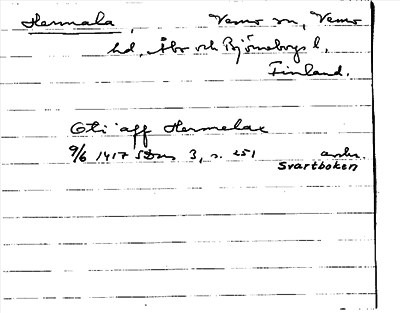 Hermala, Vemo sn, Vemo
hd, Åbo och Björneborgs l,
Finland.
Oti aff Hermelax
9/6 1417 SDns 3, s. 251 avskr.
Svartboken